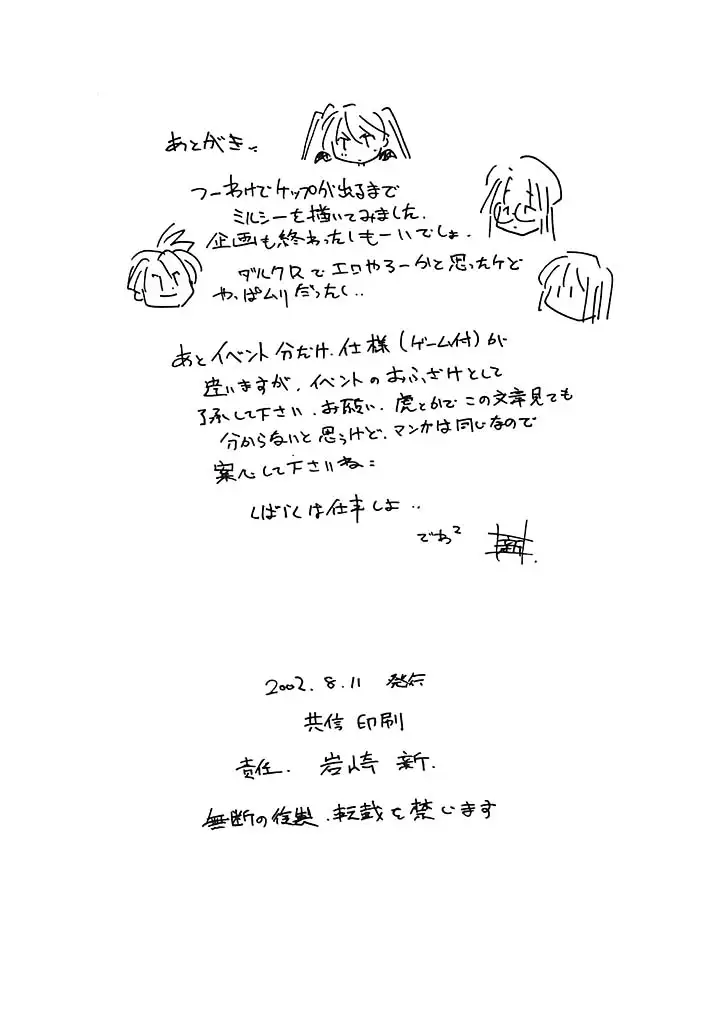 あとがき〜
つーわけでケップが出るまで
ミルシーを描いてみました.
企画も終わったしもーいでしょ.
ダルクロでエロやろーかと思ったケど
やっぱムリだったし..
あとイベント分だけ.仕様(ゲーム付)が
違いますが.イベントのおふざけとして
了承して下さい.お願い.虎とかでこの文章見ても
分からないと思うけど.マンガは同じなので
案心して下さいね=
しばらくは仕事しよ..
でわ2 新.
2002.8.11 発行
共信印刷
責任.岩崎 新.
無断の複製.転載を禁じます